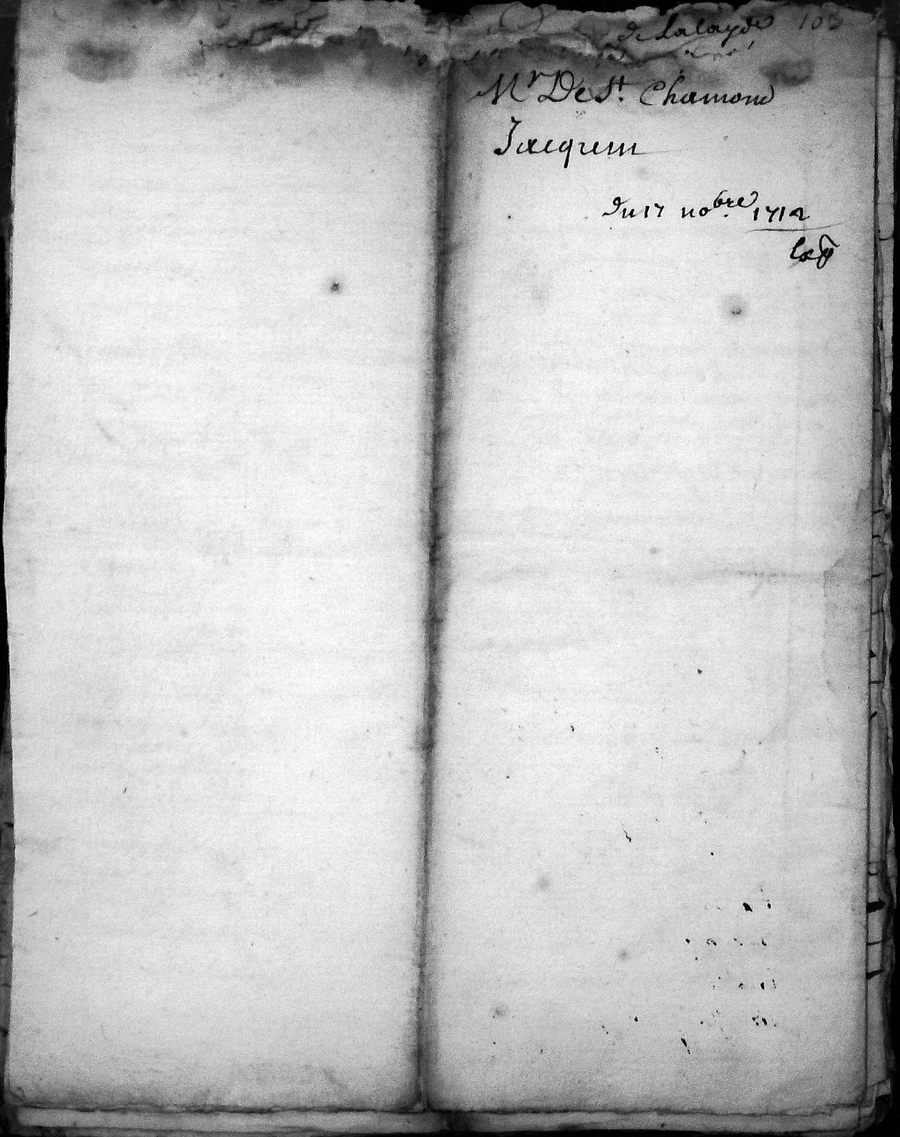 de lalayde 103
Mr De St. Chamond
Jacquein
du 17 nobre. 1712